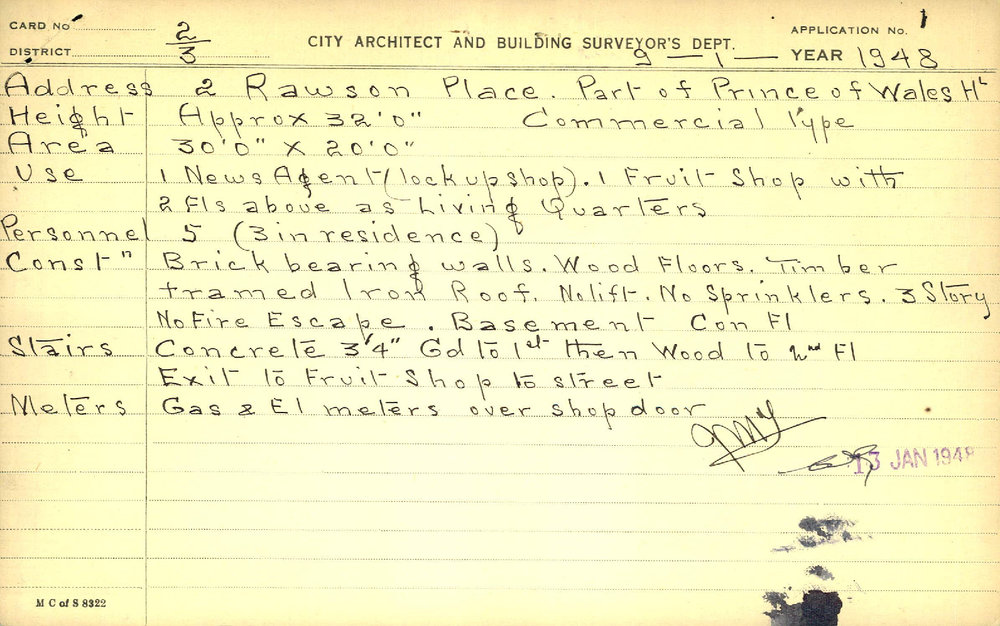 CARD No 2/3 APPLICATION No. 1
DISTRICT CITY ARCHITECT AND BUILDING SURVEYOR'S DEPT. 9 — 1 — YEAR 1948
Address 2 Rawson Place. Part of Prince of Wales Ht
Height Approx 32'0" Commercial Type
Area 30'0" x 20'0"
Use 1 News Agent (lock up shop). 1 Fruit Shop with
2 Fls above as Living Quarters
Personnel 5 (3 in residence)
Const" Brick bearing walls. Wood Floors. Timber
framed Iron Roof. No lift. No Sprinklers. 3 Story
No Fire Escape. Basement Con Fl
Stairs Concrete 3'4" Gd to 1st then Wood to 2nd Fl
Exit to Fruit Shop to street
Meters Gas & El meters over shop door
13 JAN 1948
M C of S 8322